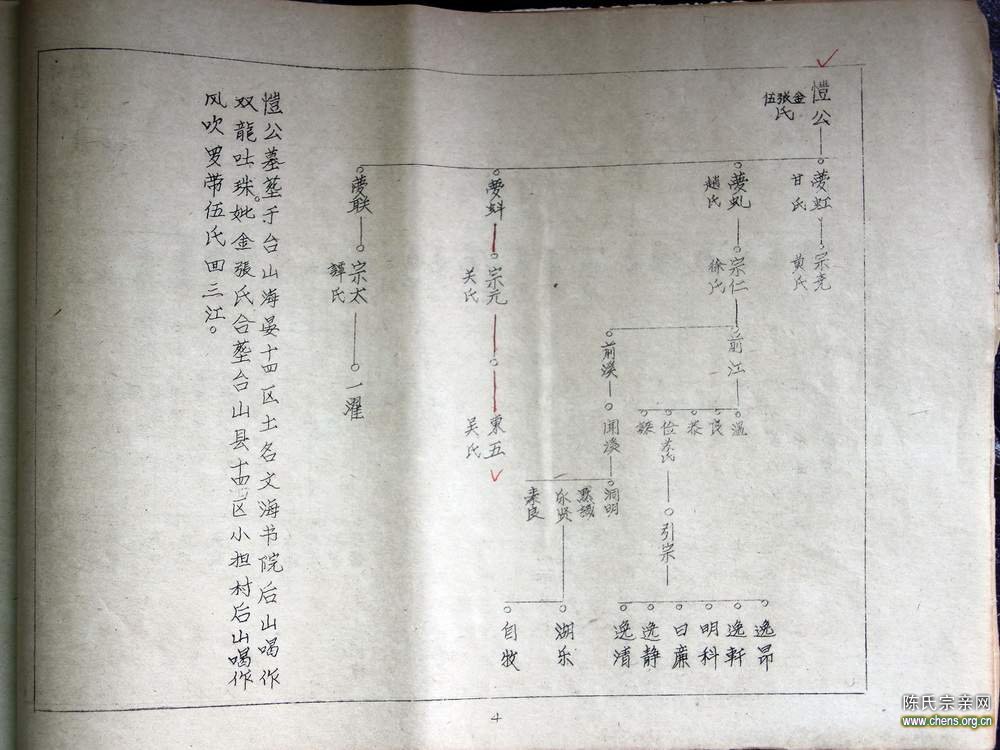 愷公
金张伍
氏
夢虹
甘氏
宗尧
黄氏
夢虬
趙氏
宗仁
徐氏
前江
温
良
恭
俭
引宗
逸昂
逸軒
明科
日廉
逸静
逸清
前溪
開溪
洞明
默識
湖乐
自牧
夢蚪
宗元
关氏
東五
吴氏
夢联
宗太
譚氏
一濯
愷公墓塟于台山海晏十四区土名文海书院后山喝作
双龍吐珠。妣金張氏合塟台山县十四区小担村后山喝作
风吹罗带伍氏回三江。
4
陈氏宗亲网
www.chens.org.cn